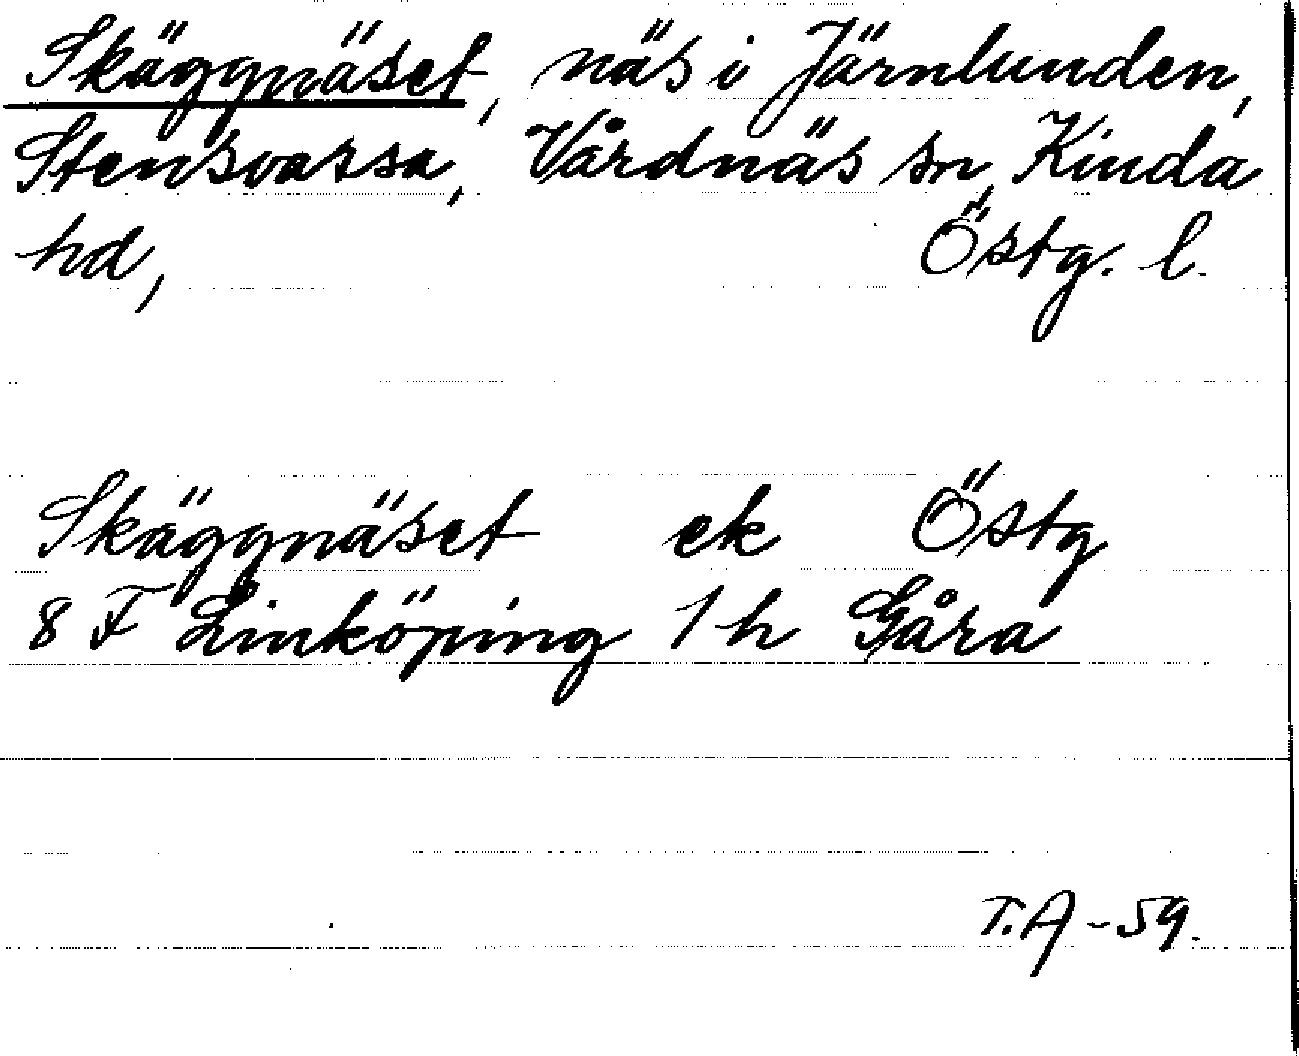 Skäggnäset, näs i Järnlunden,
Stensvassa, Vårdnäs sn, Kinda
hd, Östg. l.
Skäggnäset ek Östg
8 F Linköping 1 h Gåra
T.A-59.